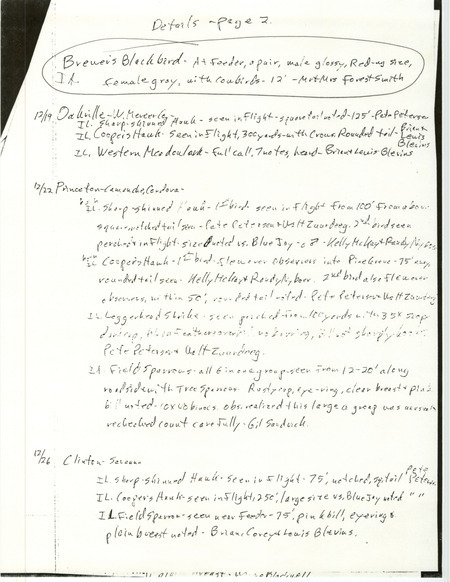 Details - page 2.
Brewer's Blackbird - At feeder, a pair, male glossy, Red-wg size,
IL female gray, with cowbirds - 12' - Mr & Mrs Forest Smith
12/19 Oakville - W.
IL. Sharp-shinned Hawk - seen in flight - square tail noted - 125' - Pete Petersen
IL. Coopers Hawk - seen in flight, 300 yards - with Crows Rounded tail - Brian & Lewis Blevins
IL. Western Meadowlark - full call, 7 notes, heard - Brian & Lewis Blevins
12/22 Princeton - Camanche, Cordova -
IL. Sharp-shinned Hawk - 1st bird - seen in flight from 100' from above
square notched tail seen - Pete Petersen & Walt Zuurdeeg. 2nd bird seen
perched & in flight - size noted vs. Blue Jay - Kelly McKay & Randy Nyboer
IL Coopers Hawk - 1st bird - flew over observers into Pine Grove - 75' away,
rounded tail seen - Kelly McKay & Randy Nyboer. 2nd bird also flew over
observers, within 50', rounded tail noted - Pete Petersen & Walt Zuurdeeg
IL. Loggerhead Shrike - seen perched from 100 yards with 35X scope
Pete Petersen & Walt Zuurdeeg.
IL. Field Sparrows - all 6 in one group - seen from 12-20' along
roadside with Tree Sparrows. Rusty cap, eye-ring, clear breast & pink
bill noted - 10X40 binocs. obs. realized this large a group was unusual
rechecked count carefully - Gil Sandwick.
12/26 Clinton - Savanna
IL. Sharp-shinned Hawk - seen in flight - 75', notched, sq. tail Pete Petersen
IL. Coopers Hawk - seen in flight, 250', large size vs. Blue Jay noted " "
IL Field Sparrow - seen near Feeder - 75', pink bill, eyering &
plain breast noted - Brian, Corey & Lewis Blevins.